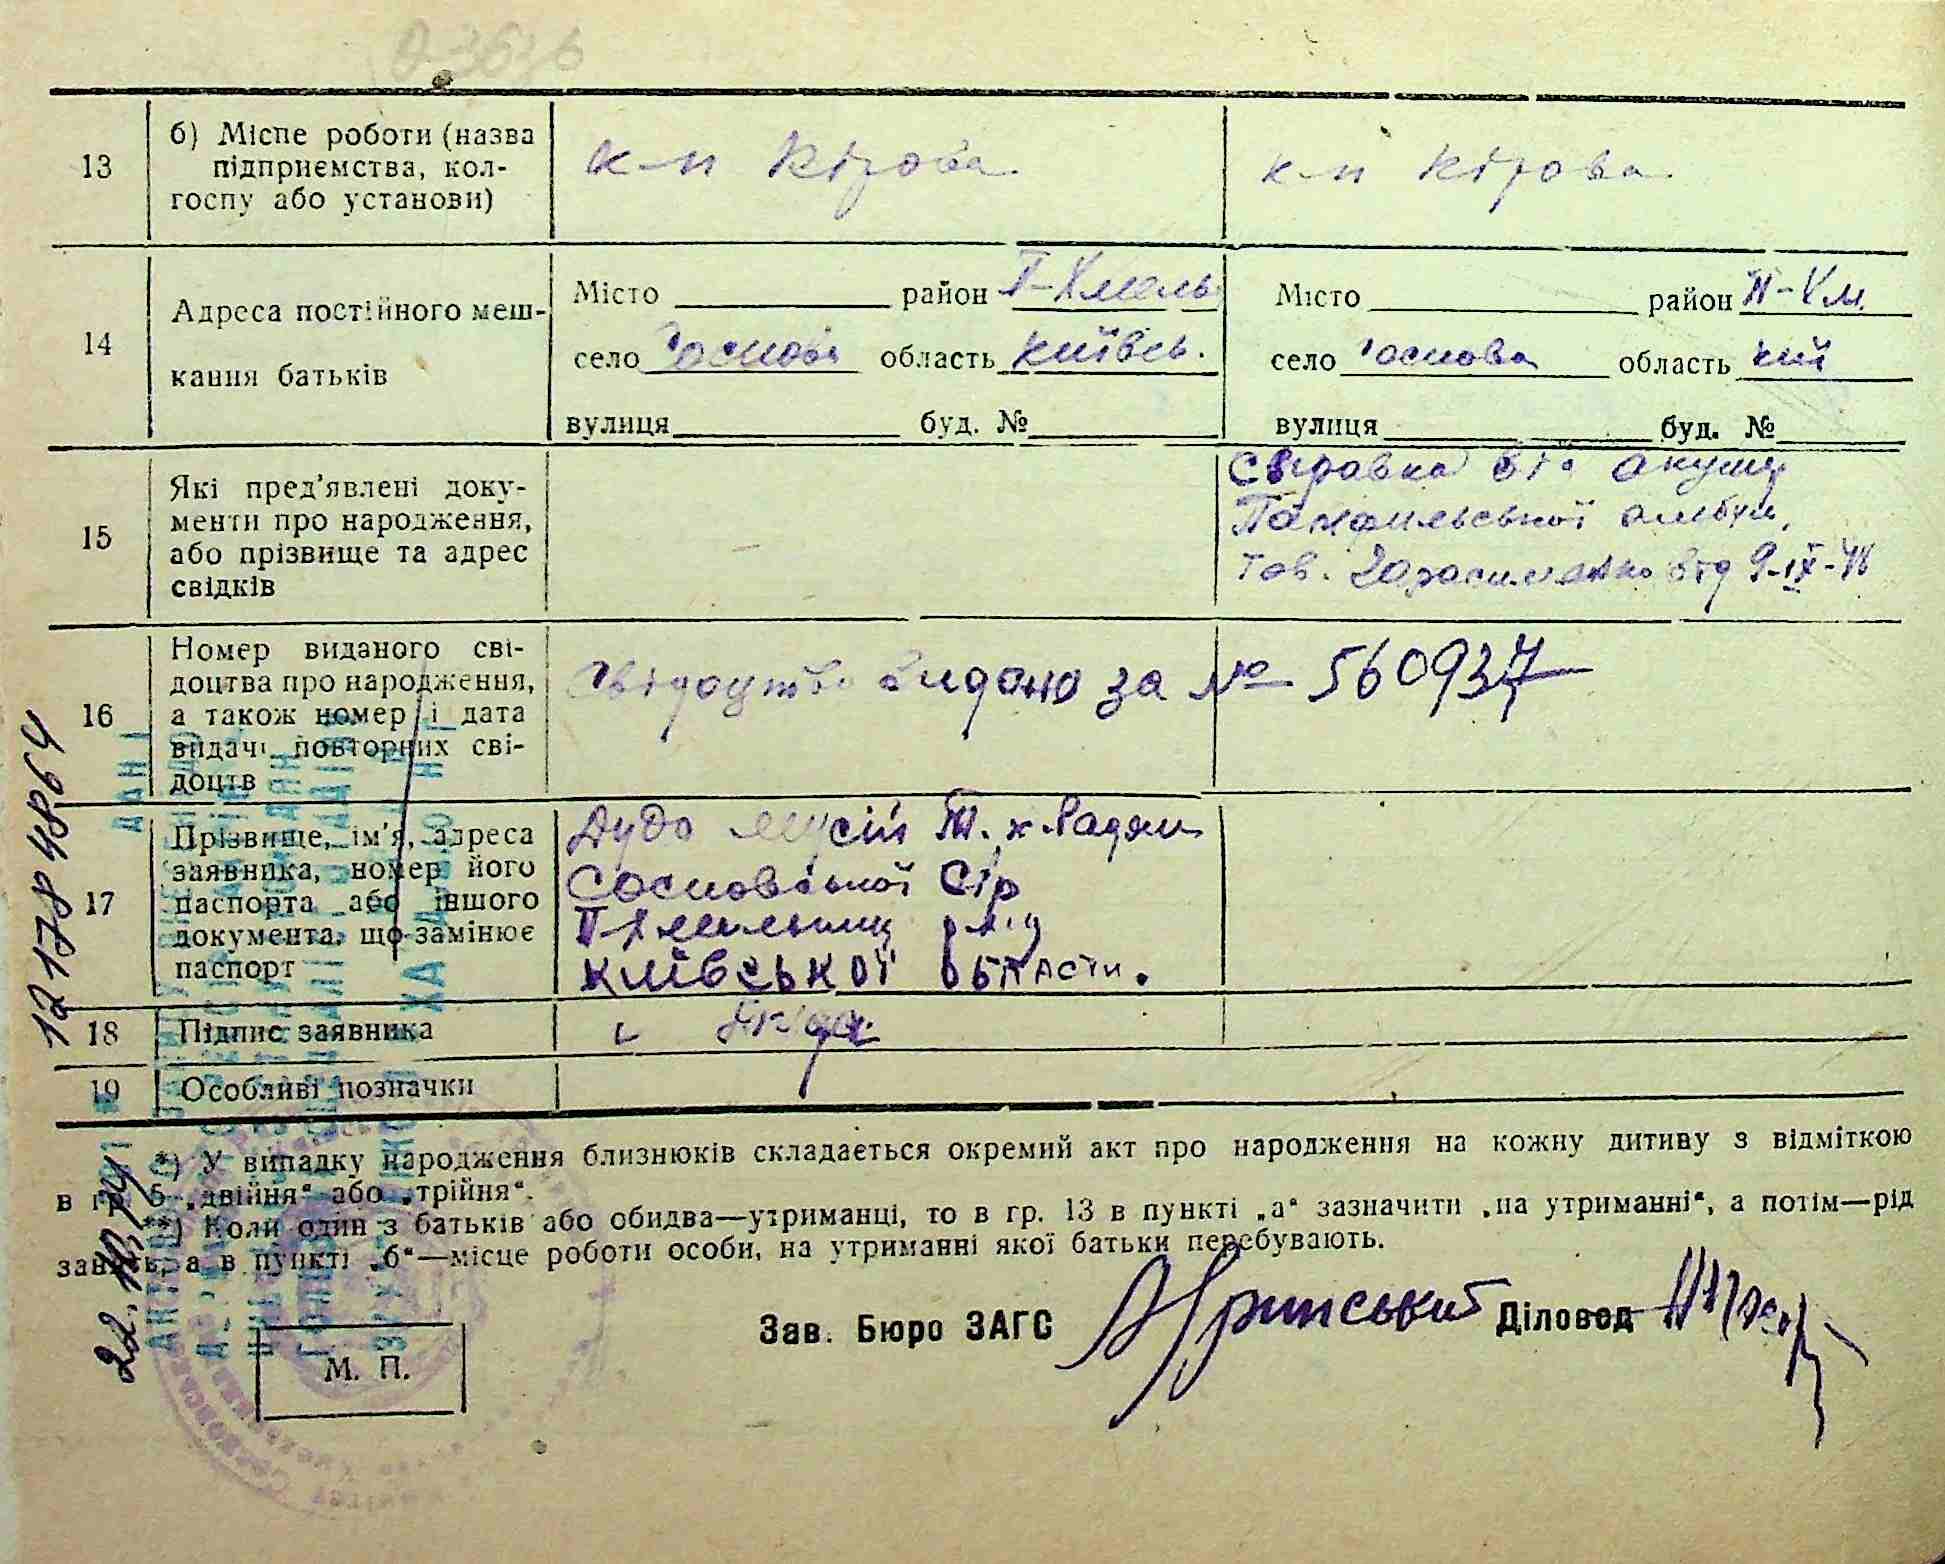 13
б) Місце роботи (назва
підприємства, кол-
госпу або установи)
к-п Кірова
к-п Кірова
14
Адреса постійного меш-
кання батьків
Місто район П-Хмель
село Соснова область Київсь.
вулиця буд. №
Місто район П-Хм.
село Соснова область Кий
вулиця буд. №
15
Які пред'явлені доку-
менти про народження,
або прізвище та адрес
свідків
Справка від акуш
Панфильської амбул,
тов. Гарасименко від 9-ІХ-46
16
Номер виданого сві-
доцтва про народження,
а також номер і дата
видачі повторних сві-
доцтв
Свідоцтво видано за № 560937
17
Прізвище, ім'я, адреса
заявника, номер його
паспорта або іншого
документа, що замінює
паспорт
Дудо Мусій
Сосновської С/р
П-Хмельниц
Київської області.
18
Підпис заявника
19
Особливі позначки
*) У випадку народження близнюків складається окремий акт про народження на кожну дитиву з відміткою
в гр. 5 „двійня“ або „трійня“.
**) Коли один з батьків або обидва—утриманці, то в гр. 13 в пункті „а“ зазначити „на утриманні“, а потім—рід
занять, а в пункті „б“—місце роботи особи, на утриманні якої батьки перебувають.
Зав. Бюро ЗАГС Діловод
М. П.
12 178 48864